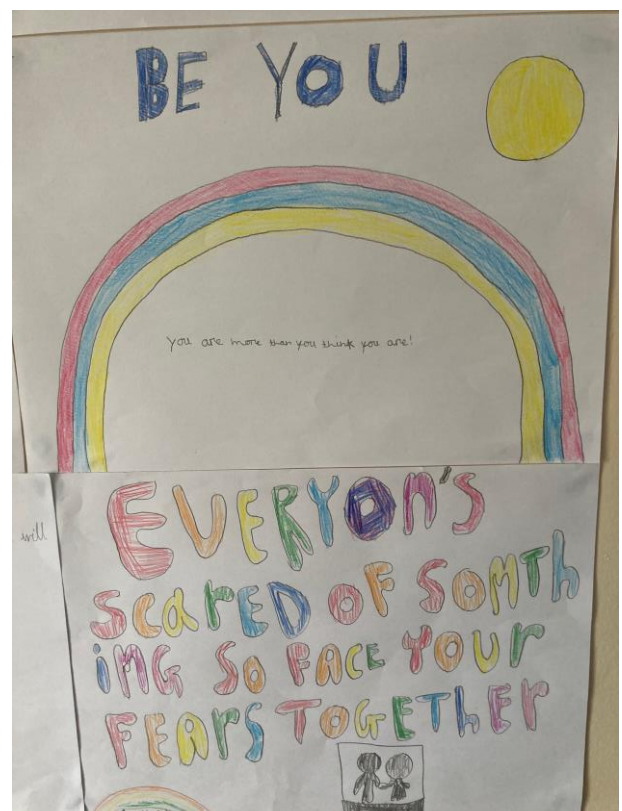 BE YOU
you are more than you think you are!
will
EVERYON'S
SCARED OF SOMTH
iNG SO FACE YOUr
FEArS TOGETHEr